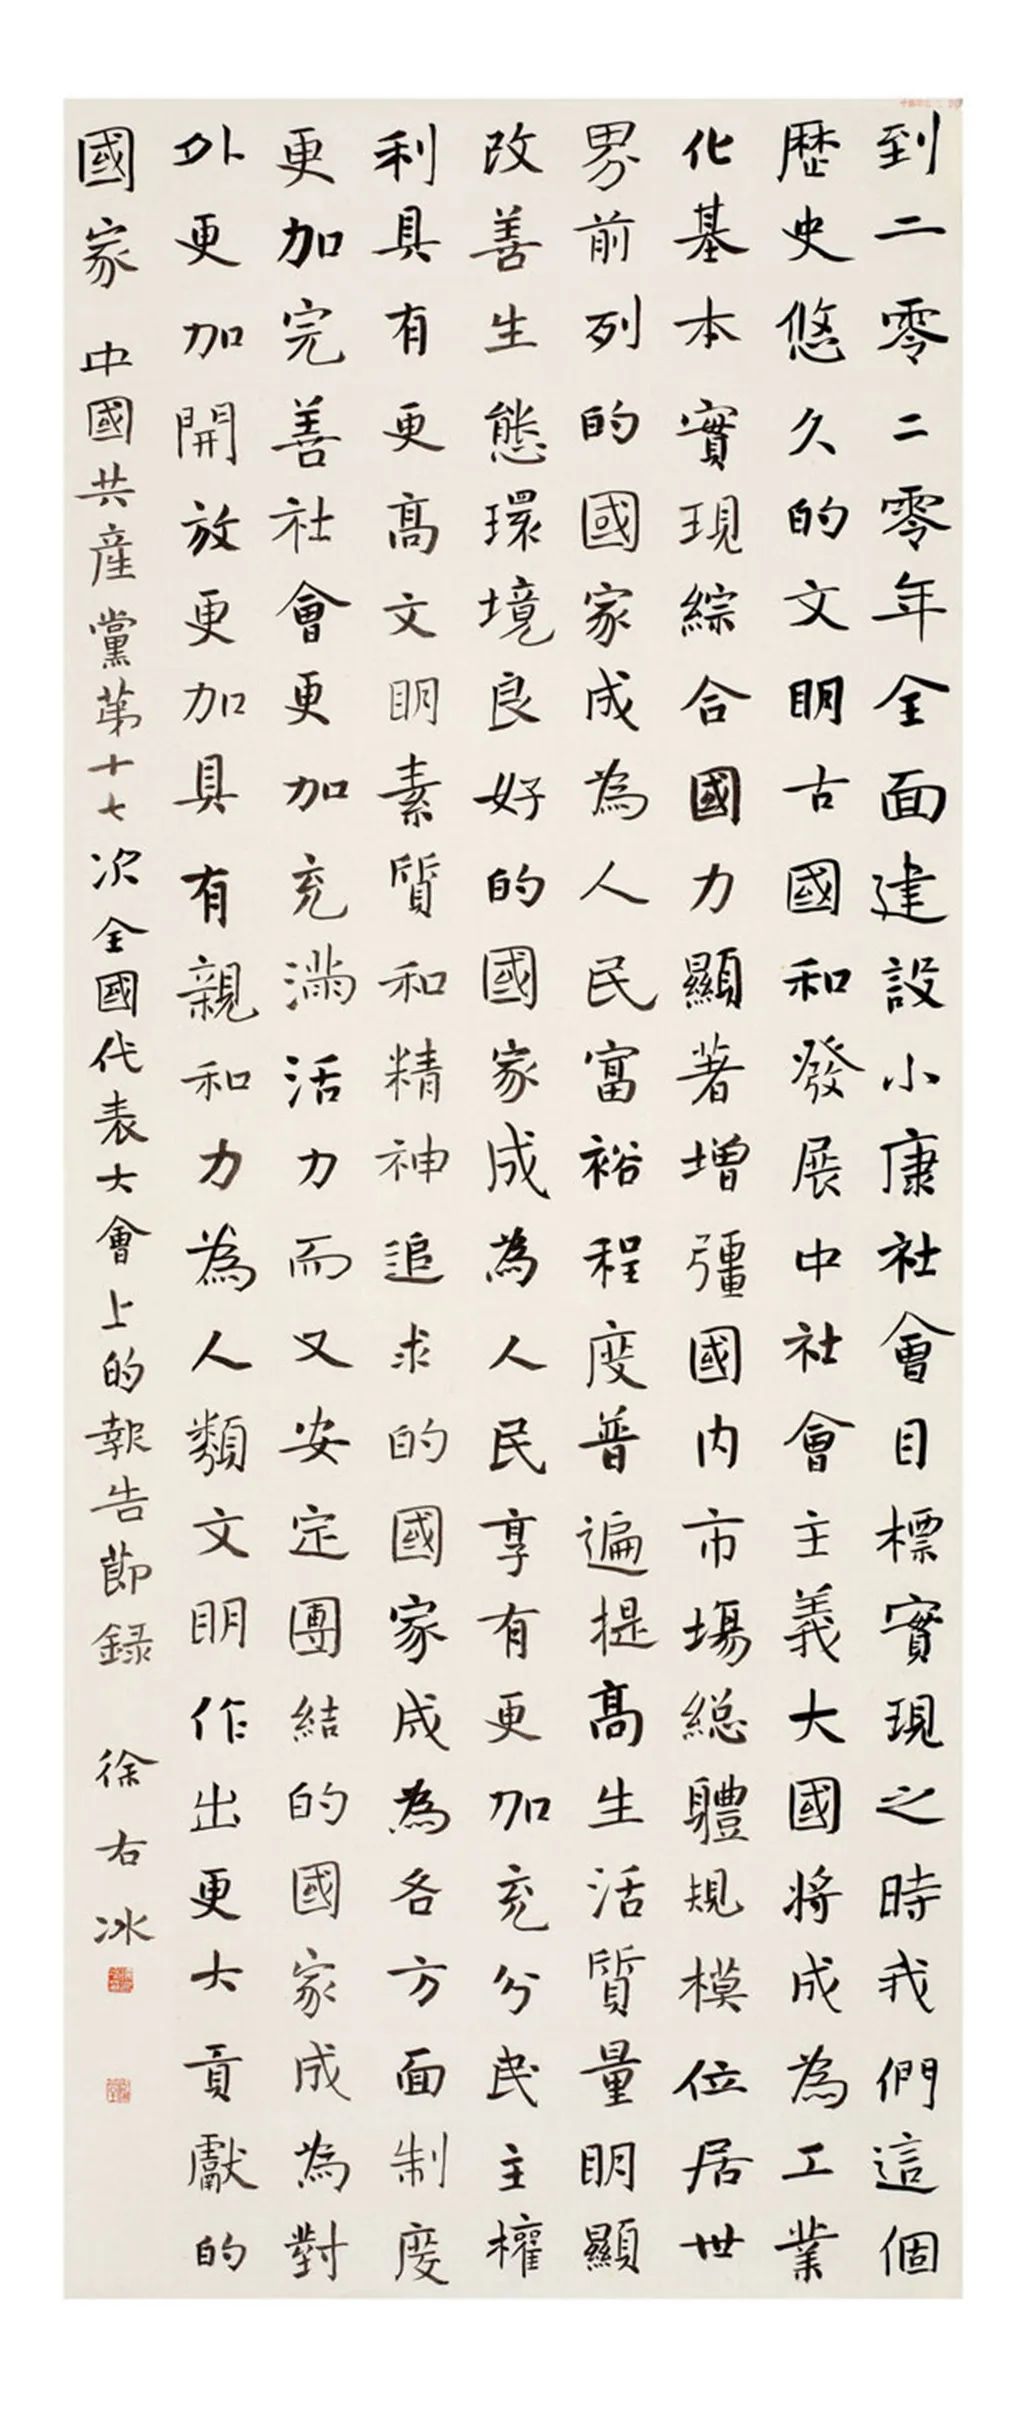 到二零二零年全面建設小康社會目標實現之時我們這個
歷史悠久的文明古國和發展中社會主義大國將成為工業
化基本實現綜合國力顯著增彊國內市場総體規模位居世
界前列的國家成為人民富裕程度普遍提高生活質量明顯
改善生態環境良好的國家成為人民享有更加充分民主權
利具有更高文明素質和精神追求的國家成為各方面制度
更加完善社會更加充滿活力而又安定團結的國家成為對
外更加開放更加具有親和力為人類文明作出更大貢獻的
國家 中國共産黨第十七次全國代表大會上的報告節録 徐右冰